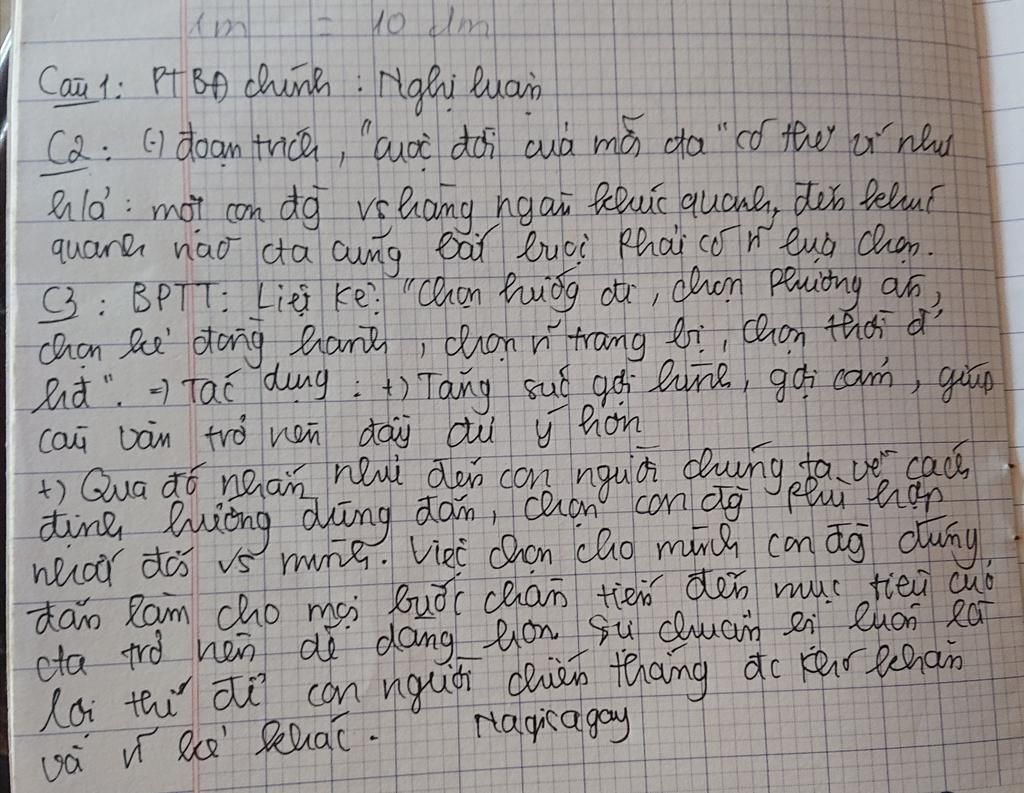 1m = 10 dm
Câu 1: PTBĐ chính : Nghị luận
C2: (-) đoạn trích, "cuộc đời của mỗi cta" có thể ví như
h/ả: một con đg vs hàng ngàn khúc quanh, đến khúc
quanh nào cta cũng bắt buộc phải có n~ lựa chọn.
C3: BPTT: Liệt kê: "Chọn hướng đi, chọn phương án,
chọn kẻ đồng hành, chọn n~ trang bị, chọn thời đ'
hđ". => Tác dụng: +) Tăng sức gợi hình, gợi cảm, giúp
câu văn trở nên đầy đủ ý hơn
+) Qua đó nhắn nhủ đến con người chúng ta về cách
định hướng đúng đắn, chọn con đg phù hợp
nhất đối vs mình. Việc chọn cho mình con đg đúng
đắn làm cho mọi bước chân tiến đến mục tiêu của
cta trở nên dễ dàng hơn sự chuẩn bị luôn là
lợi thế để con người chiến thắng đc khó khăn
và n~ kẻ khác. Nagisagay